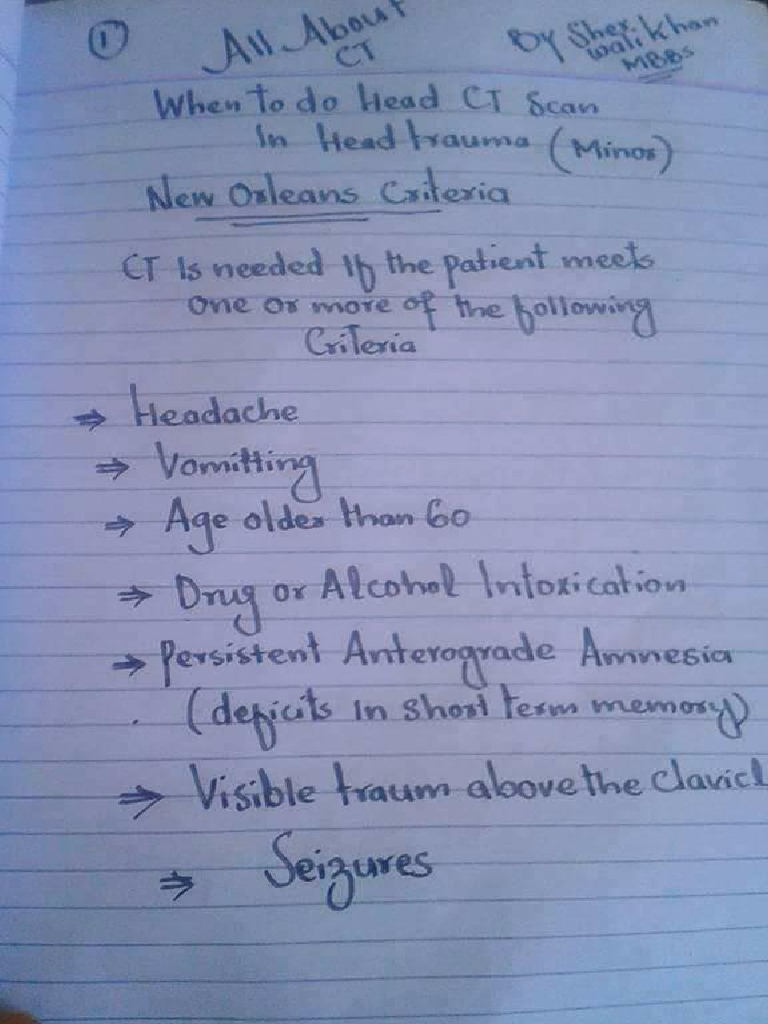 1
All About
CT
By Sher
wali khan
MBBS
When to do Head CT Scan
In Head trauma (Minor)
New Orleans Criteria
CT Is needed If the patient meets
one or more of the following
Criteria
⇒ Headache
⇒ Vomitting
⇒ Age older than 60
⇒ Drug or Alcohol Intoxication
⇒ Persistent Anterograde Amnesia
(deficits in short term memory)
⇒ Visible traum above the Clavicl
⇒ Seizures